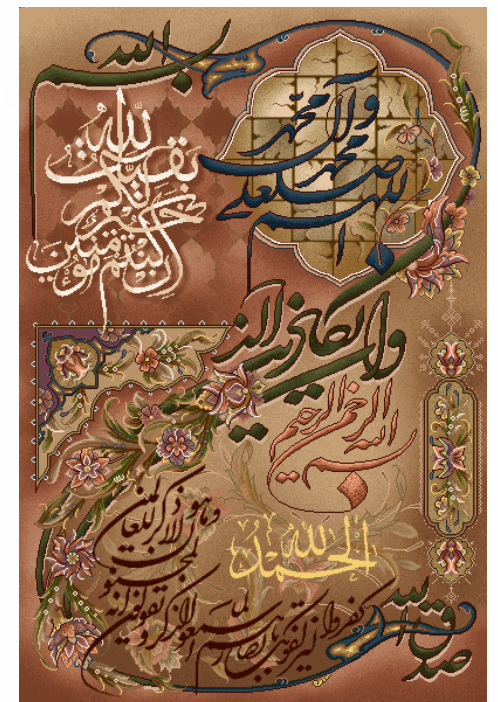 بسم الله
اللهم صل علی محمد و آل محمد
بقیت الله خیر لکم ان کنتم مؤمنین
و ان یکاد الذین
بسم الله الرحمن الرحیم
کفروا لیزلقونک بابصارهم لما سمعوا الذکر و یقولون انه
لمجنون
و ما هو الا ذکر للعالمین
الحمد لله
صدق الله